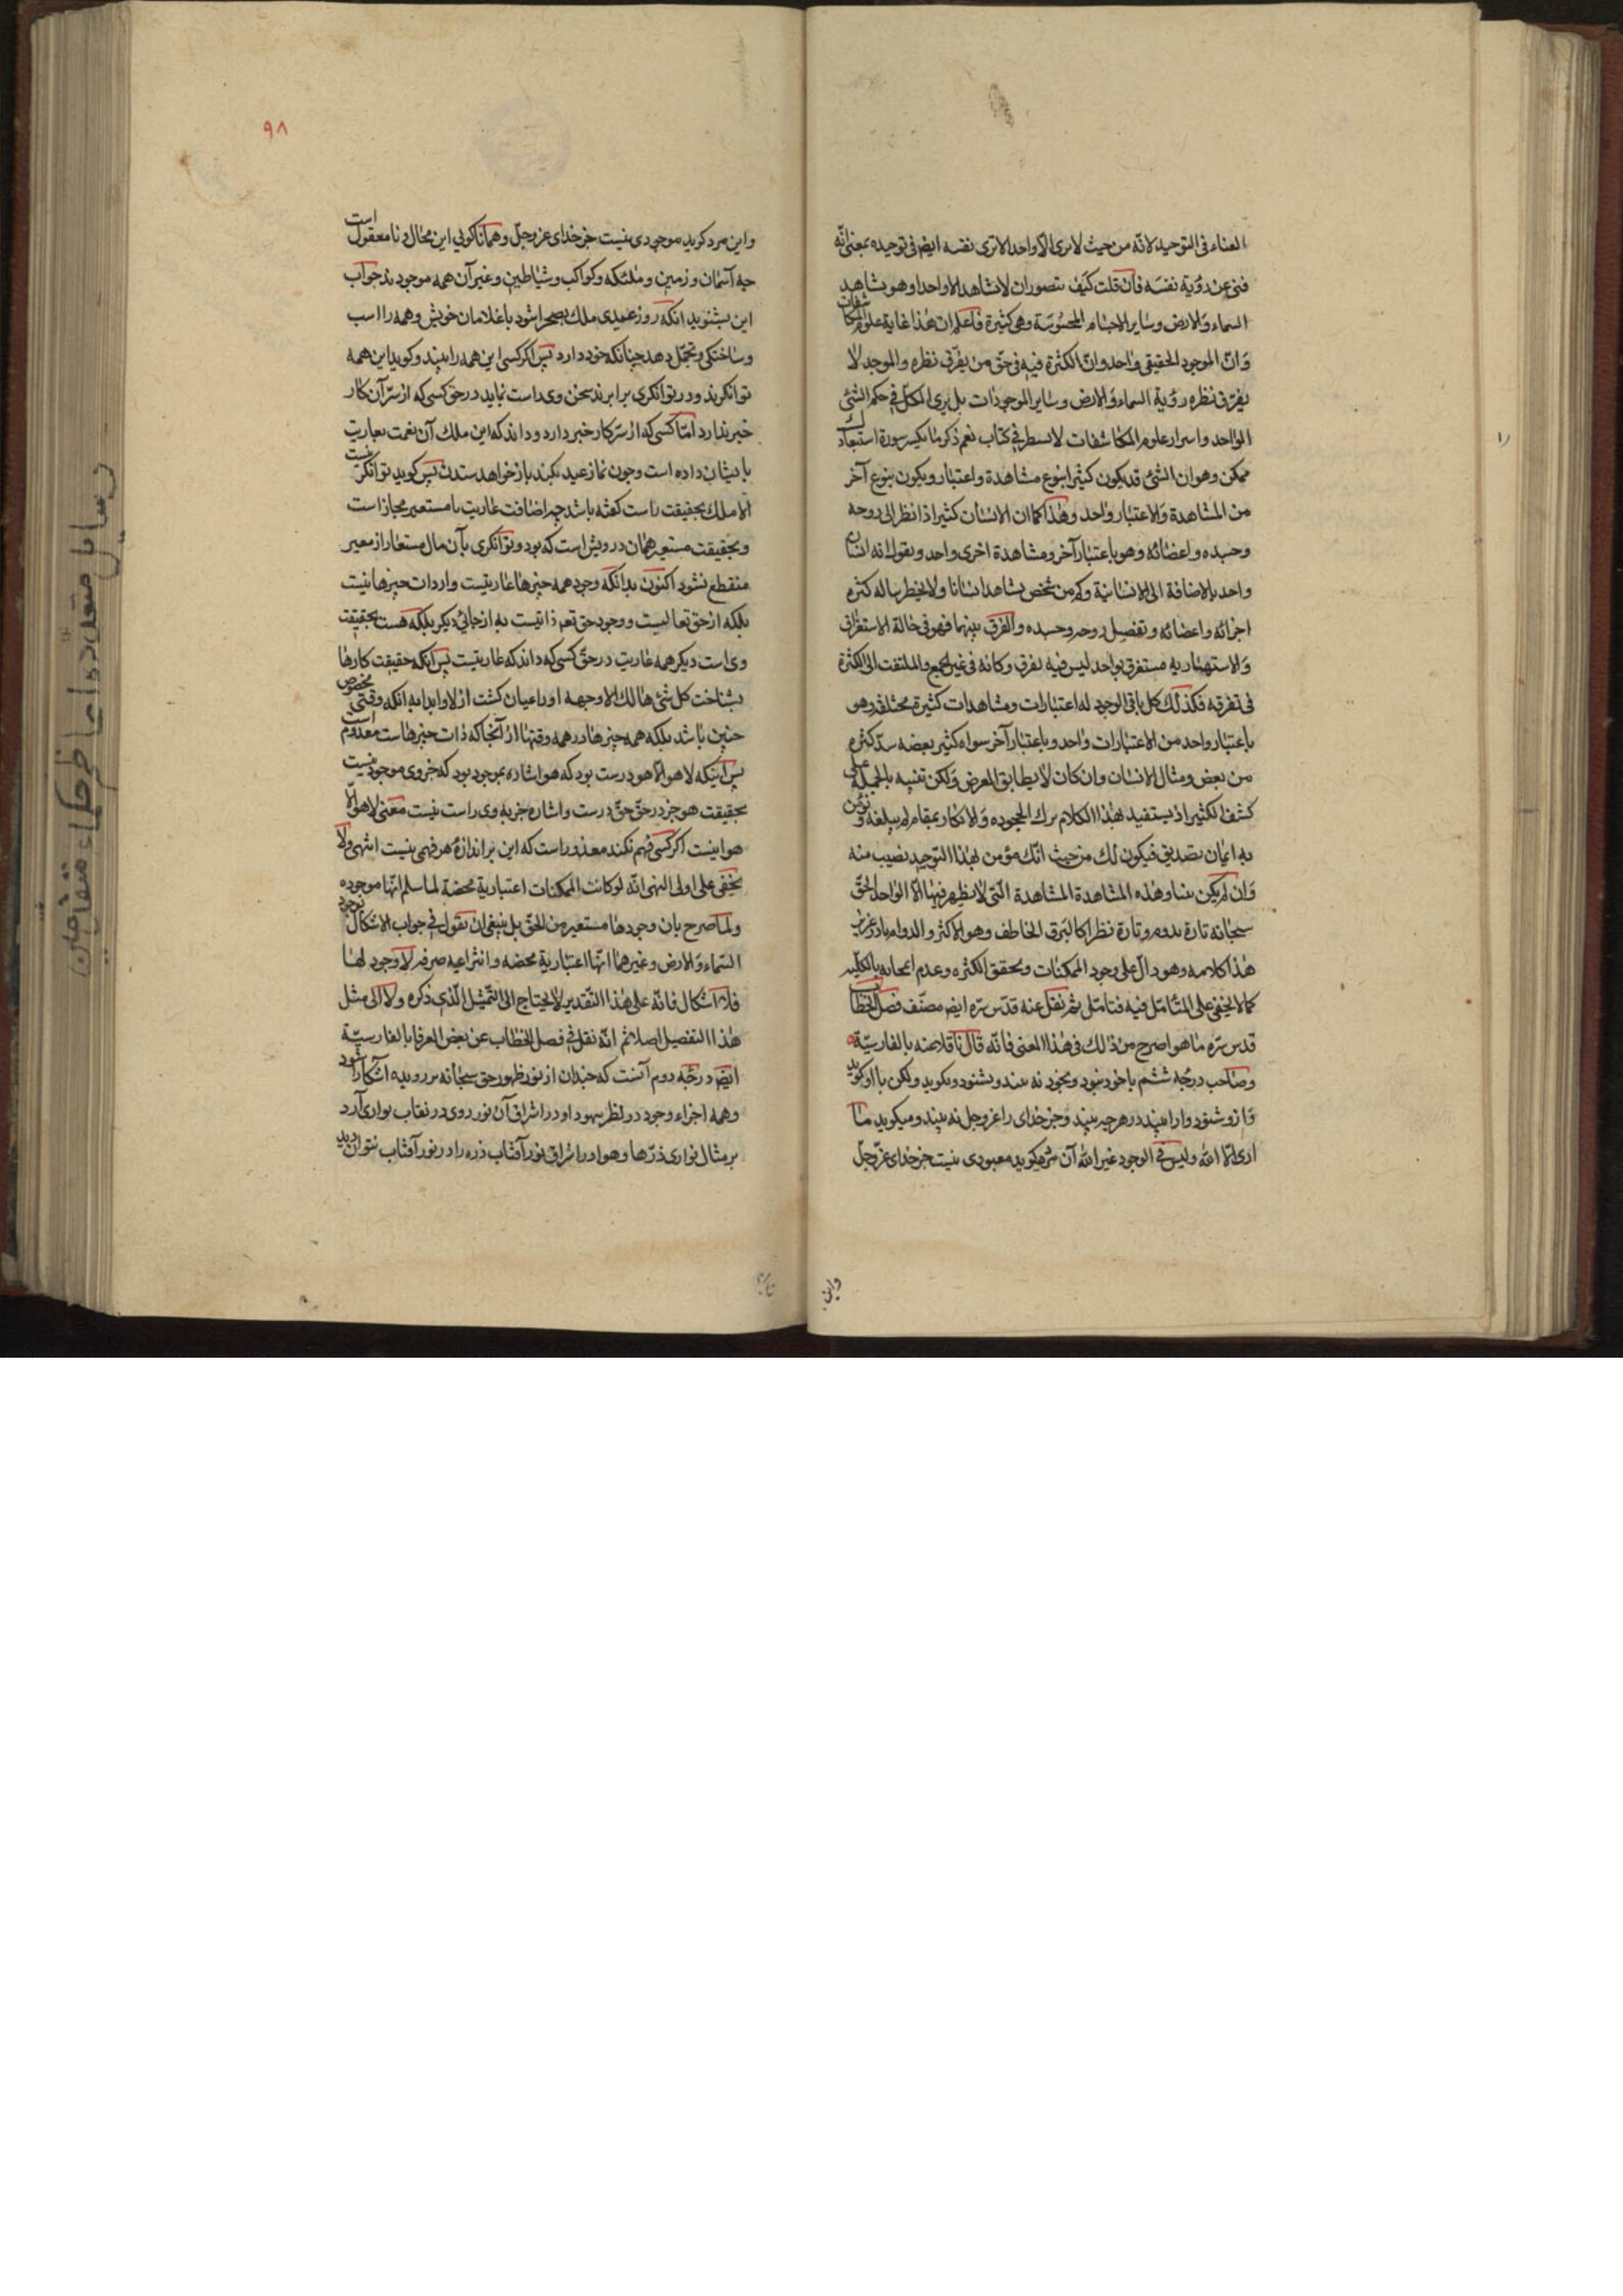 الفناء فی التوحید لانّه من حیث لا یری الّا واحدا لا تری نفسه ایض فی توحیده بمعنی انّه
فنی عن رؤیة نفسه فان قلت کیف یتصوران لا یشاهد الا واحدا وهو یشاهد
السماء والارض وسایر الاجسام المحسوسة وهی کثیرة فاعلم ان هذا غایة علوم المکاشفات
وانّ الموجود الحقیقی واحد وانّ الکثرة فیه فی حقّ من یفرّق نظره والموحد لا
یفرّق نظره رؤیة السماء والارض وسایر الموجودات بل یری الکلّ فی حکم الشئ
الواحد واسرار علوم المکاشفات لا تسطر فی کتاب نعم ذکر ما یکسر سورة استبعادک
ممکن وهو ان الشئ قد یکون کثیرا بنوع مشاهدة واعتبار ویکون بنوع آخر
من المشاهدة والاعتبار واحد وهذا کما ان الانسان کثیر اذا نظر الی روحه
وجسده واعضائه وهو باعتبار آخر ومشاهدة اخری واحد ویقول انه انسان
واحد بالاضافة الی الانسانیة وکم من شخص یشاهد انسانا ولا یخطر بباله کثره
اجزائه واعضائه وتفصیل روحه وجسده والفرق بینهما فهو فی حالة الاستغراق
والاستهتار به مستغرق بواحد لیس فیه تفرق وکانه فی عین الجمع والملتفت الی الکثرة
فی تفرقه فکذلک کل باقی الوجود له اعتبارات ومشاهدات کثیرة مختلفه وهو
باعتبار واحد من الاعتبارات واحد وباعتبار آخر سواه کثیر بعضه اشدّ کثره
من بعض ومثال الانسان وان کان لا یطابق الغرض ولکن تنبیه بالجملة علی
کشف الکثیر اذ یستفید بهذا الکلام ترک الجحوده والانکار بمقام لم یبلغه وتؤمن
به ایمان تصدیق فیکون لک من حیث انّک مؤمن بهذا التوحید نصیب منه
وان لم یکن نبیا وهذه المشاهدة المشاهدة الّتی لا یظهر فیها الّا الواحد الحقّ
سبحانه تارة یدوم وتارة نظر اکالبرق الخاطف وهو الاکثر والدوام نادر عزیز
هذا کلامه وهو دالّ علی وجود الممکنات وتحقق الکثره وعدم انمحائه بالکلیه
کما لا یخفی علی المتأمل فیه فتأمّل ثم نقل عنه قدّس سره ایض مصنّف فصل الخطاب
قدس سرّه ما هو اصرح من ذلک فی هذا المعنی فانّه قال ناقلا عنه بالفارسیّة
وصاحب درجه ششم با خود نبود وبخود نه بیند ونشنود ونکوید ولکن با او کوید
وازو شنود واورا بیند در هر چه بیند وجز خدای را عزوجل نه بیند ومیکوید ما
اری الّا الله ولیس فی الوجود غیر الله آن مرد میکوید معبودی نیست جز خدای عزّوجلّ
واین
۹۸
واین مرد کوید موجودی نیست جز خدای عزوجلّ وهمانا کوئی این محال ونامعقول است
چه آسمان وزمین وملئکه وکواکب وشیاطین وغیر آن همه موجودند جواب
این بشنوید انکه روز عیدی ملک بصحرا شود با غلامان خویش وهمه را اسب
وساختگی وتجمّل دهد چنانکه خود دارد پس اکر کسی این همه را بیند وکوید این همه
توانکرند ودر توانکری برابرند سخن وی راست نماید در حق کسی که از سرّ آن کار
خبر ندارد امّا کسی که از سرّ کار خبر دارد وداند که این ملک آن نعمت بعاریت
بایشان داده است وچون نماز عید بکند باز خواهد ستدن پس کوید توانکر نیست
الا ملک بحقیقت راست کفته باشد چه اضافت عاریت با مستعیر مجاز است
وبحقیقت مستعیر همان درویش است که بود وتوانکری بآن مال مستعار از معیر
منقطع نشود اکنون بدانکه وجود همه چیزها عاریتیست واز ذات چیزها نیست
بلکه از حق تعالیست ووجود حق تعه ذاتیست نه از جائی دیکر بلکه هست بحقیقت
وی است دیکر همه عاریت در حقّ کسی که داند که عاریتیست پس آنکه حقیقت کارها
بشناخت کل شئ هالک الا وجهه اورا عیان کشت ازلا وابدا نه انکه وقتی مخصوص
چنین باشد بلکه همه چیزها در همه وقتها از آنجا که ذات چیزهاست معدوم است
پس آنیکه لا هو الّا هو درست بود که هو اشاره بموجود بود که جز وی موجود نیست
بحقیقت هو جز در حقّ حقّ درست واشاره جز به وی راست نیست معنی لا هو الّا
هو اینست اکر کسی فهم نکند معذور است که این بر اندازهٔ هر فهمی نیست انتهی ولا
یخفی علی اولی النهی انّه لو کانت الممکنات اعتباریة محضة لما سلم انّها موجوده
ولما صرح بان وجودها مستعیر من الحقّ بل ینبغی ان یقول فی جواب الاشکال بوجود
السّماء والارض وغیرهما انّها اعتباریة محضه وانتزاعیه صرفه لا وجود لها
فلا اشکال فانّه علی هذا التّقدیر لا یحتاج الی التّمثیل الّذی ذکره ولا الی مثل
هذا التفصیل اصلا ثم انّه نقل فی فصل الخطاب عن بعض العرفا بالفارسیّة
ایض درجّه دوم آنست که چندان از نور ظهور حق سبحانه بر رونده آشکارا شود
وهمه اجزاء وجود در نظر شهود او در اشراق آن نور روی در نقاب تواری آرد
بر مثال تواری ذرّها وهوا در اشراق نور آفتاب ذره را در نور آفتاب نتوان دید
رسایل متعدّده از حکماء متقدمین